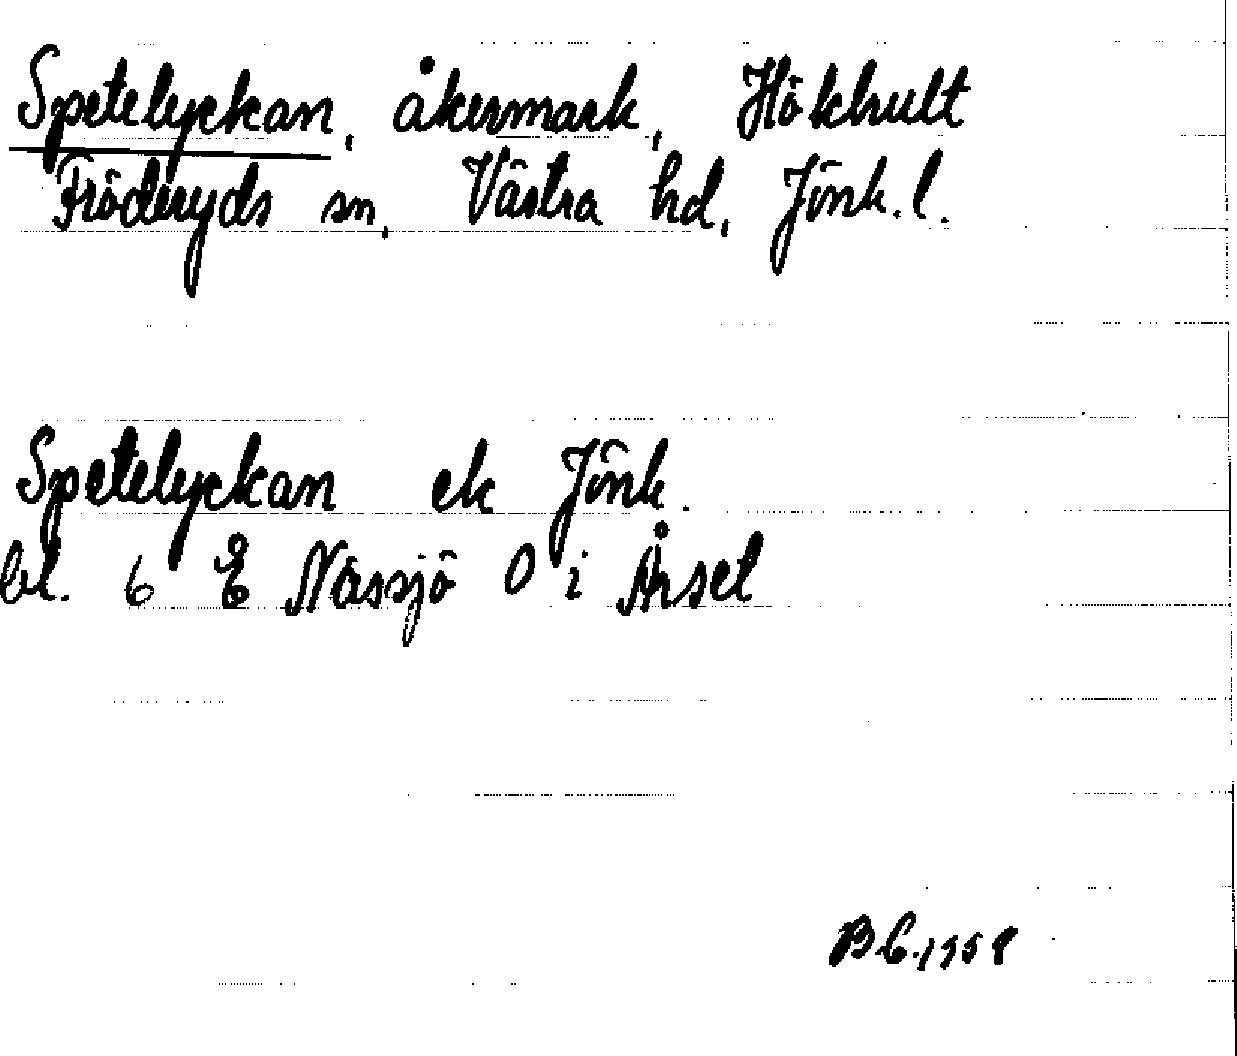 Spetelyckan, åkermark, Hökhult
Fröderyds sn, Västra hd, Jönk. l.
Spetelyckan ek Jönk.
bl. 6 E Nässjö O i Årset
B C. 1958